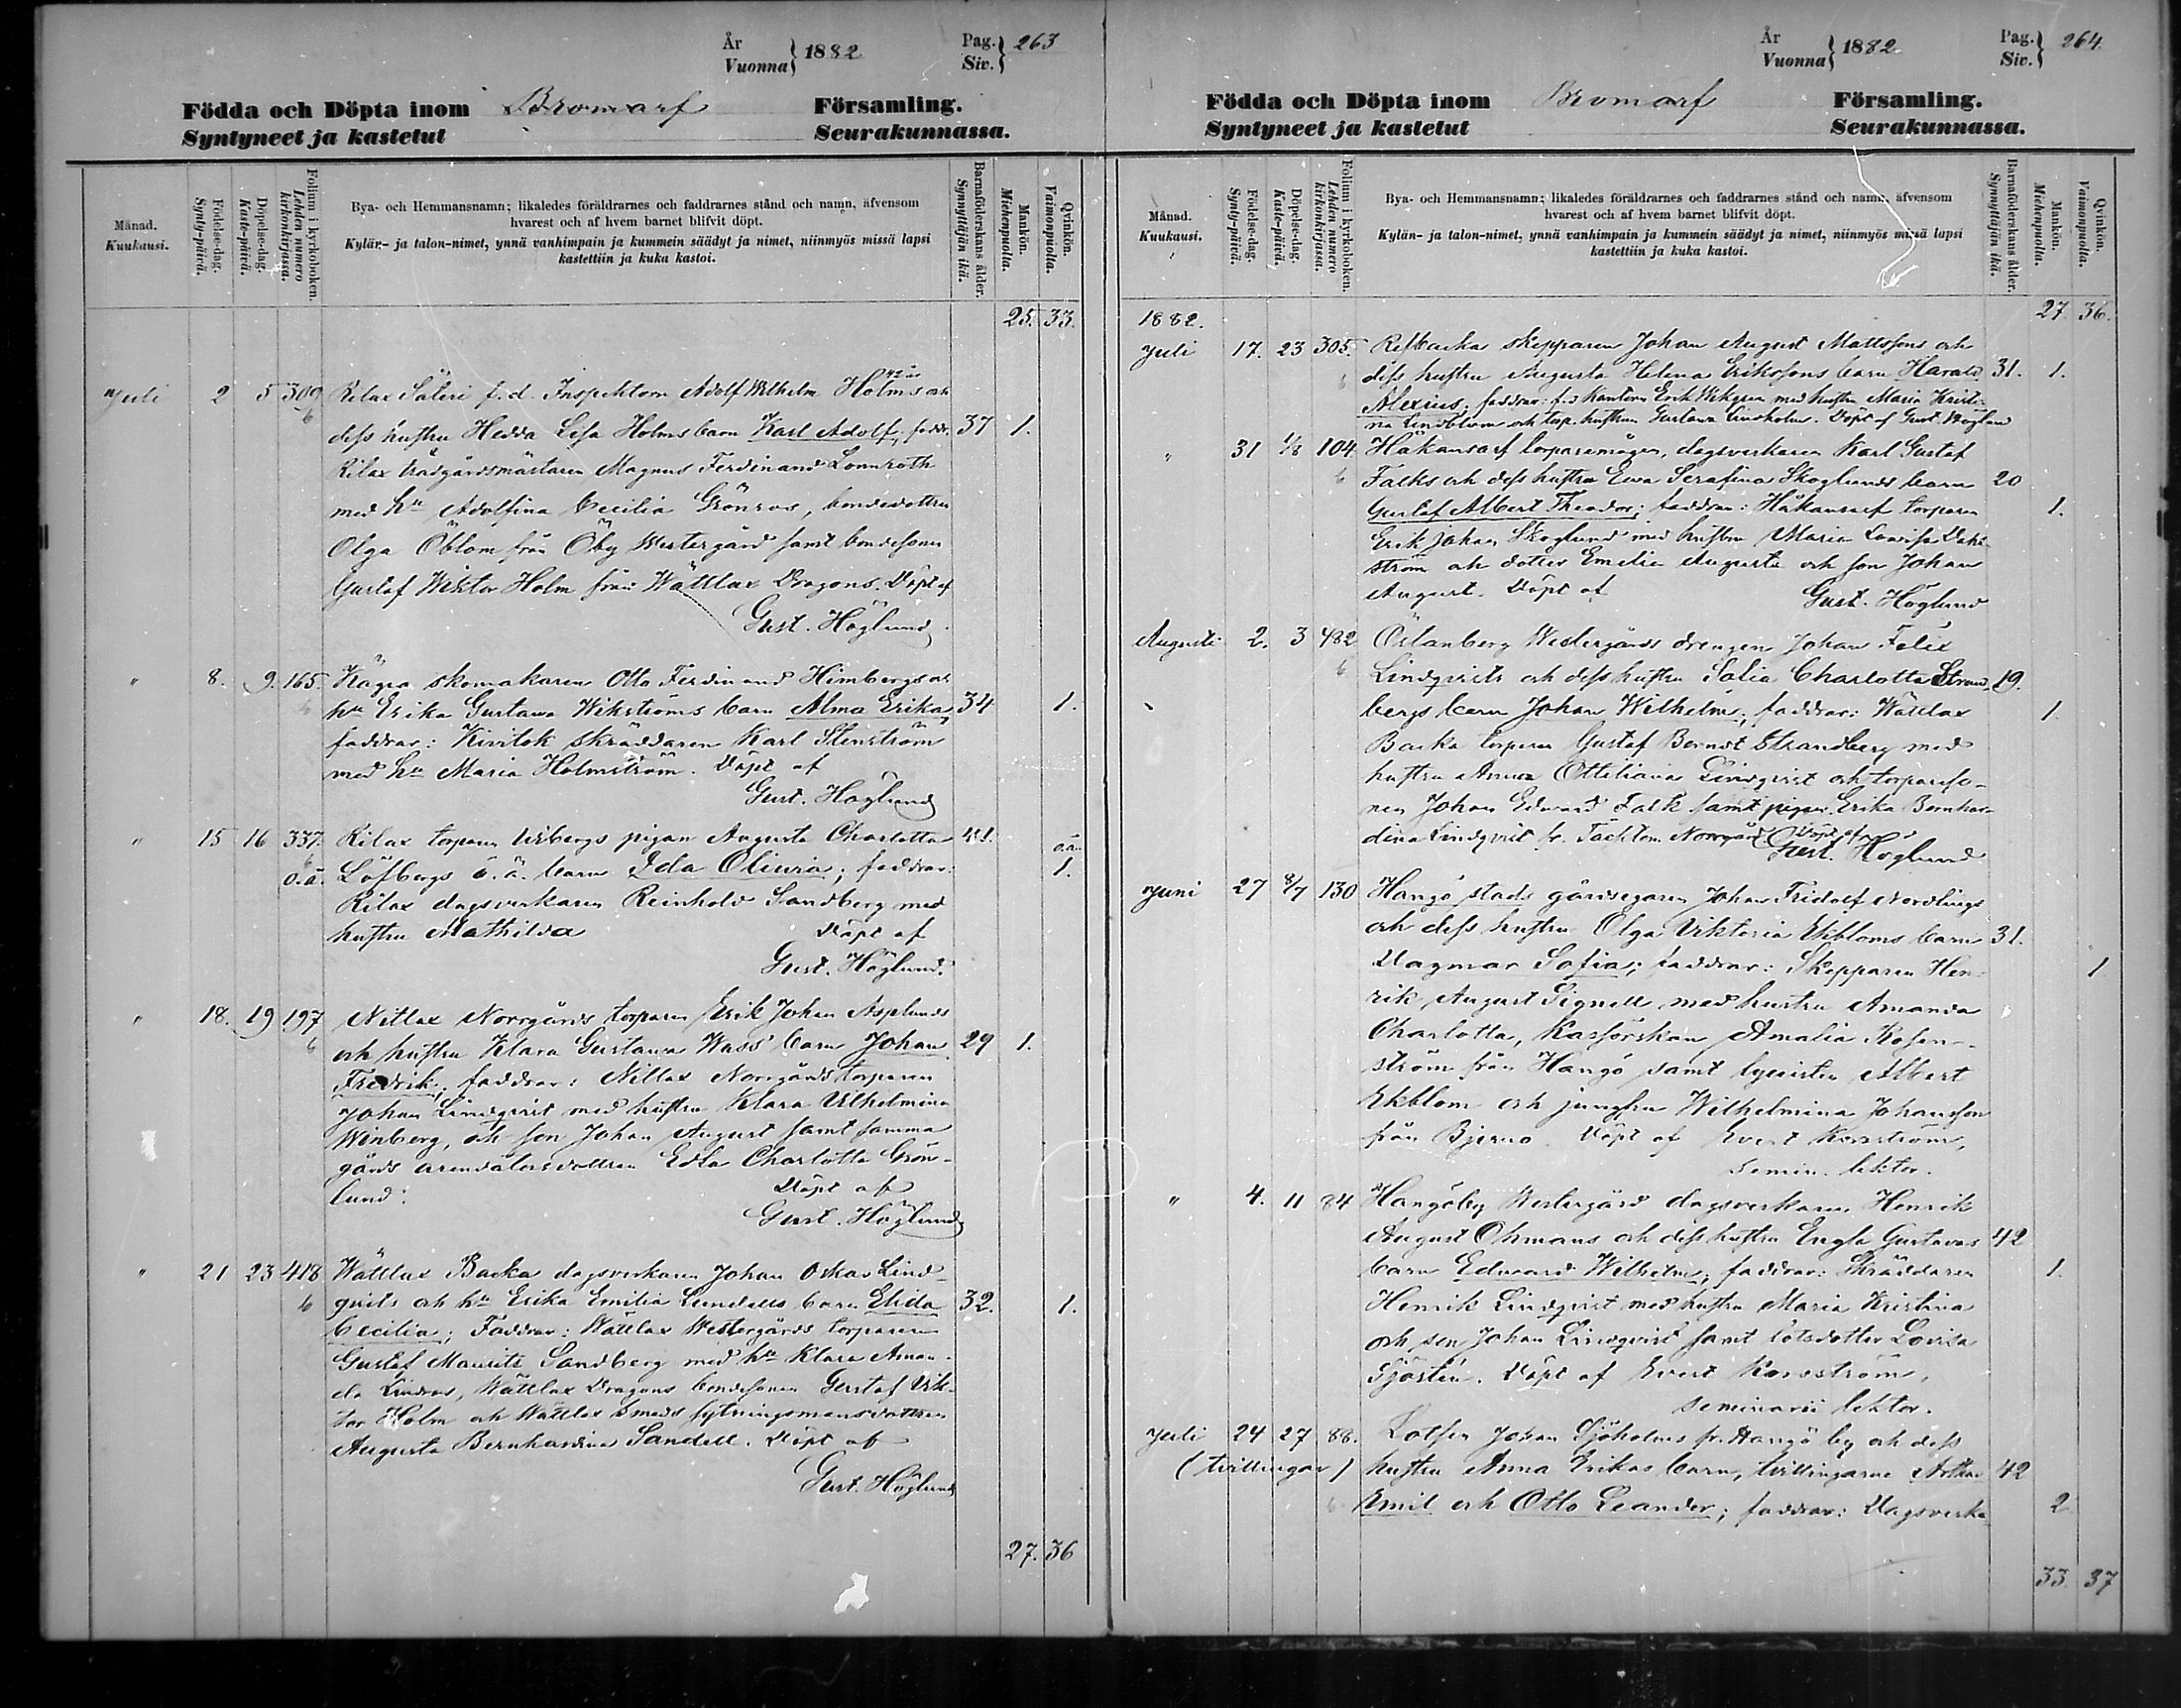 År
Vuonna } 1882
Pag.
Siv. } 263
Födda och Döpta inom Bromarf Församling.
Syntyneet ja kastetut Seurakunnassa.
Månad.
Kuukausi.
Födelse-dag.
Synty-päivä.
Döpelse-dag.
Kaste-päivä.
Folium i kyrkoboken.
Lehden numero
kirkonkirjassa.
Bya- och Hemmansnamn; likaledes föräldrarnes och faddrarnes stånd och namn, äfvensom
hvarest och af hvem barnet blifvit döpt.
Kylän- ja talon-nimet, ynnä vanhimpain ja kummein säädyt ja nimet, niinmyös missä lapsi
kastettiin ja kuka kastoi.
Barnaföderskans ålder.
Synnyttäjän ikä.
Mankön.
Miehenpuolta.
Qvinkön.
Vaimonpuolta.
25. 33.
42 år
Juli 2 5 309 Rilax Säteri f. d. Inspektorn Adolf Wilhelm Holms och
dess hustru Hedda Lisa Holms barn Karl Adolf; faddr. 37 1.
Rilax trädgårdsmästaren Magnus Ferdinand Lönnroth
med hu Adolfina Cecilia Grönroos, bondedottren
Olga Öblom från Öby Westergård samt bondesonen
Gustaf Wiktor Holm från Wättlax Dragons. Döpt af
Gust. Höglund.
" 8. 9. 165. Kägra skomakaren Otto Ferdinand Himbergs och
hu Erika Gustawa Wikströms barn Alma Erika, 34 1.
faddrar: Kivitok skräddaren Karl Stenström
med hu Maria Holmström. Döpt af
Gust. Höglund
" 15 16 337. Rilax torparen Wibergs pigan Augusta Charlotta 41. o.ä.
o.ä. Löfbergs o. ä. barn Ida Olivia; faddrar: 1.
Rilax dagsverkaren Reinhold Sandberg med
hustru Mathilda Döpt af
Gust. Höglund.
" 18. 19 197 Nitlax Norrgårds torparen Erik Johan Asplunds
och hustru Klara Gustawa Wass' barn Johan 29 1.
Fredrik; faddrar: Nitlax Norrgårds torparen
Johan Lindqvist med hustru Klara Wilhelmina
Winberg, och son Johan August samt samma
gårds arendatorsdottren Edla Charlotta Grön-
lund. Döpt af
Gust. Höglund
" 21 23 418 Wättlax Backa dagsverkaren Johan Oskar Lind-
qvists och hu Erika Emilia Lundells barn Elida 32. 1.
Cecilia; Faddrar: Wättlax Westergårds torparen
Gustaf Maurits Sandberg med hu Klara Aman-
da Lindroos, Wättlax Dragons bondesonen Gustaf Wik-
tor Holm och Wättlax Smeds sytningsmansdottren
Augusta Bernhardina Sandell. Döpt af
Gust. Höglund
27. 36
År
Vuonna } 1882
Pag.
Siv. } 264
Födda och Döpta inom Bromarf Församling.
Syntyneet ja kastetut Seurakunnassa.
Månad.
Kuukausi.
Födelse-dag.
Synty-päivä.
Döpelse-dag.
Kaste-päivä.
Folium i kyrkoboken.
Lehden numero
kirkonkirjassa.
Bya- och Hemmansnamn; likaledes föräldrarnes och faddrarnes stånd och namn, äfvensom
hvarest och af hvem barnet blifvit döpt.
Kylän- ja talon-nimet, ynnä vanhimpain ja kummein säädyt ja nimet, niinmyös missä lapsi
kastettiin ja kuka kastoi.
Barnaföderskans ålder.
Synnyttäjän ikä.
Mankön.
Miehenpuolia.
Qvinkön.
Vaimonpuolia.
1882. 27 36.
Juli 17. 23 305. skepparen Johan August Mattssons och
dess hustru Augusta Helena Erikssons barn Harald 31. 1.
Alexius; faddrar: f. d. Kantorn Erik Wikgren med hustru Maria Kristi-
na Lindblom och torp. hustrun Gustava Lindholm. Döpt af Gust. Höglund
" 31 1/8 104 Håkansarf torparemågen, dagsverkaren Karl Gustaf
Falks och dess hustru Ewa Serafina Skoglunds barn 20
Gustaf Albert Theodor; faddrar: Håkansarf torparen 1.
Erik Johan Skoglund med hustru Maria Lovisa Dahl-
ström och dotter Emilia Augusta och son Johan
August. Döpt af Gust. Höglund
Augusti 2. 3 482 Östanberg Westergårds drengen Johan Felix
Lindqvists och dess hustru Sofia Charlotta Strand- 19.
bergs barn Johan Wilhelm; faddrar: Wättlax 1.
Backa torparen Gustaf Berndt Strandberg med
hustru Anna Ottiliana Lindqvist och torpareso-
nen Johan Edward Falk samt pigan Erika Bernhar-
dina Lindqvist fr. Täcktom Norrgård. Döpt af
Gust. Höglund
Juni 27 8/7 130 Hangö stads gårdsegaren Johan Fridolf Nordlings
och dess hustru Olga Viktoria Ekbloms barn 31.
Dagmar Sofia; faddrar: Skepparen Hen- 1
rik August Signell med hustru Amanda
Charlotta, Kassörskan Amalia Rosen-
ström från Hangö samt lyceisten Albert
Ekblom och jungfru Wilhelmina Johansson
från Bjerno. Döpt af Evert Korsström,
semin. lektor.
" 4. 11 84 Hangöby Westergård dagsverkaren Henrik
August Öhmans och dess hustru Engla Gustavas 42
barn Edward Wilhelm; faddrar: Skräddaren 1.
Henrik Lindqvist med hustru Maria Kristina
och son Johan Lindqvist samt lotsdotter Lovisa
Sjöstén. Döpt af Evert Korsström,
seminarii lektor.
Juli 24 27 88. Lotsen Johan Sjöholms fr. Hangö by och dess
(tvillingar) hustru Anna Erikas barn, tvillingarne Arthur 42
Emil och Otto Leander; faddrar: Dagsverka- 2
33. 37